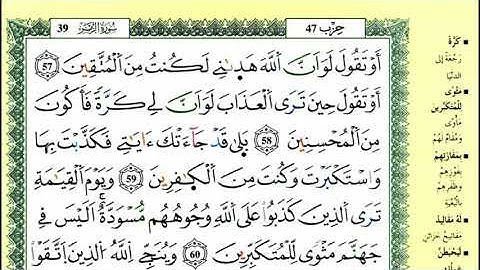 39 سُورَةُ الزُّمَرِ حِزْب 47
أَوْ تَقُولَ لَوْ أَنَّ ٱللَّهَ هَدَىٰنِى لَكُنتُ مِنَ ٱلْمُتَّقِينَ 57
أَوْ تَقُولَ حِينَ تَرَى ٱلْعَذَابَ لَوْ أَنَّ لِى كَرَّةً فَأَكُونَ
مِنَ ٱلْمُحْسِنِينَ 58 بَلَىٰ قَدْ جَآءَتْكَ ءَايَٰتِى فَكَذَّبْتَ بِهَا
وَٱسْتَكْبَرْتَ وَكُنتَ مِنَ ٱلْكَٰفِرِينَ 59 وَيَوْمَ ٱلْقِيَٰمَةِ
تَرَى ٱلَّذِينَ كَذَبُوا۟ عَلَى ٱللَّهِ وُجُوهُهُم مُّسْوَدَّةٌ أَلَيْسَ فِى
جَهَنَّمَ مَثْوًى لِّلْمُتَكَبِّرِينَ 60 وَيُنَجِّى ٱللَّهُ ٱلَّذِينَ ٱتَّقَوْا۟
كَرَّةً
رَجْعَةً إلى
الدنيا
مَثْوًى
لِلْمُتَكَبِّرِينَ
مَأْوًى
وَمُقَامٌ لَهُمْ
بِمَفَازَتِهِمْ
بِفَوْزِهِمْ
وَظَفَرِهِمْ
بِالْبُغْيَةِ
لَهُ مَقَالِيدُ
مَفَاتِيحُ خَزَائِنِ
لَيَحْبَطَنَّ